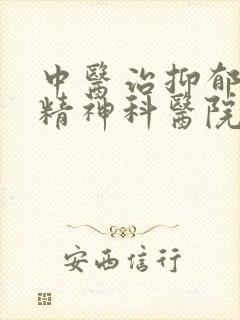 中醫治抑郁
精神科醫院
安西信行